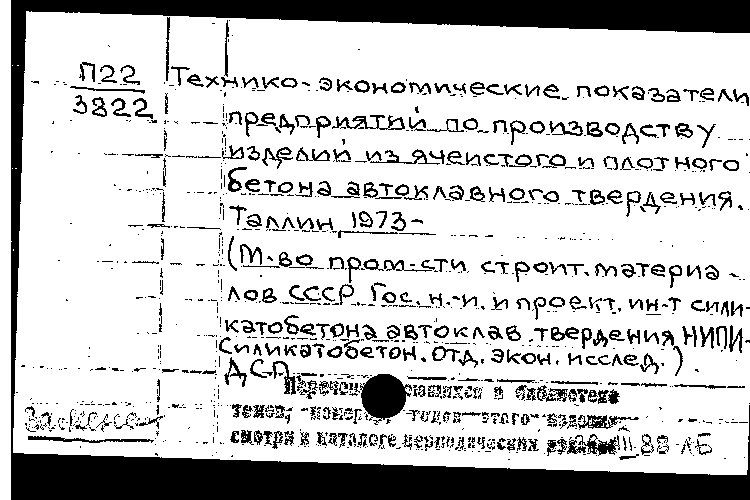 П22
3822
Технико-экономические показатели
предприятий по производству
изделий из ячеистого и плотного
бетона автоклавного твердения.
Таллин, 1973-
(М-во пром-сти строит. материа-
лов СССР. Гос. н.-и. и проект. ин-т сили-
катобетона автоклав. твердения НИПИ-
силикатобетон. Отд. экон. исслед.).
ДСП
Перечень имеющихся в библиотеке
томов, номеров, годов этого издания
смотри в каталоге периодических изданий III 88 ЛБ